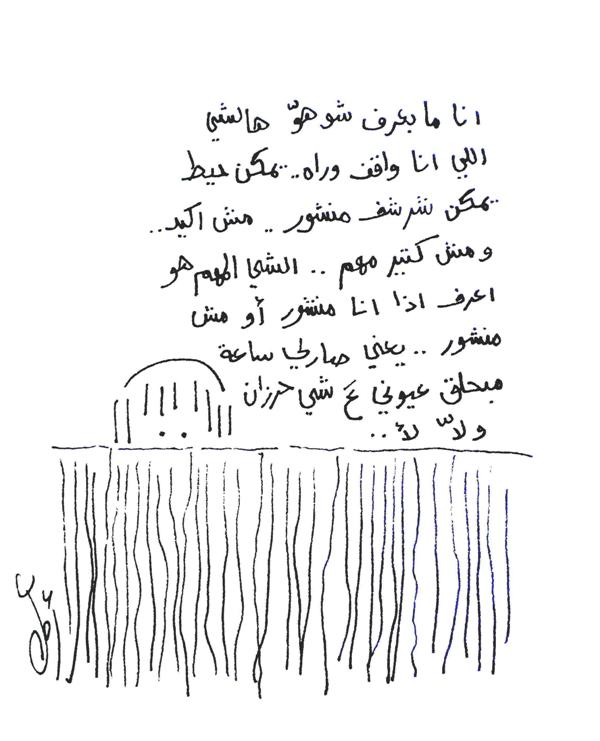 انا ما بعرف شو هوّ هالشي
اللي انا واقف وراه.. يمكن حيط
يمكن شرشف منشور.. مش اكيد..
ومش كتير مهم.. الشي المهم هو
اعرف اذا انا منشور أو مش
منشور.. يعني صارلي ساعة
مبحلق عيوني عَ شي حرزان
ولاّ لأ..